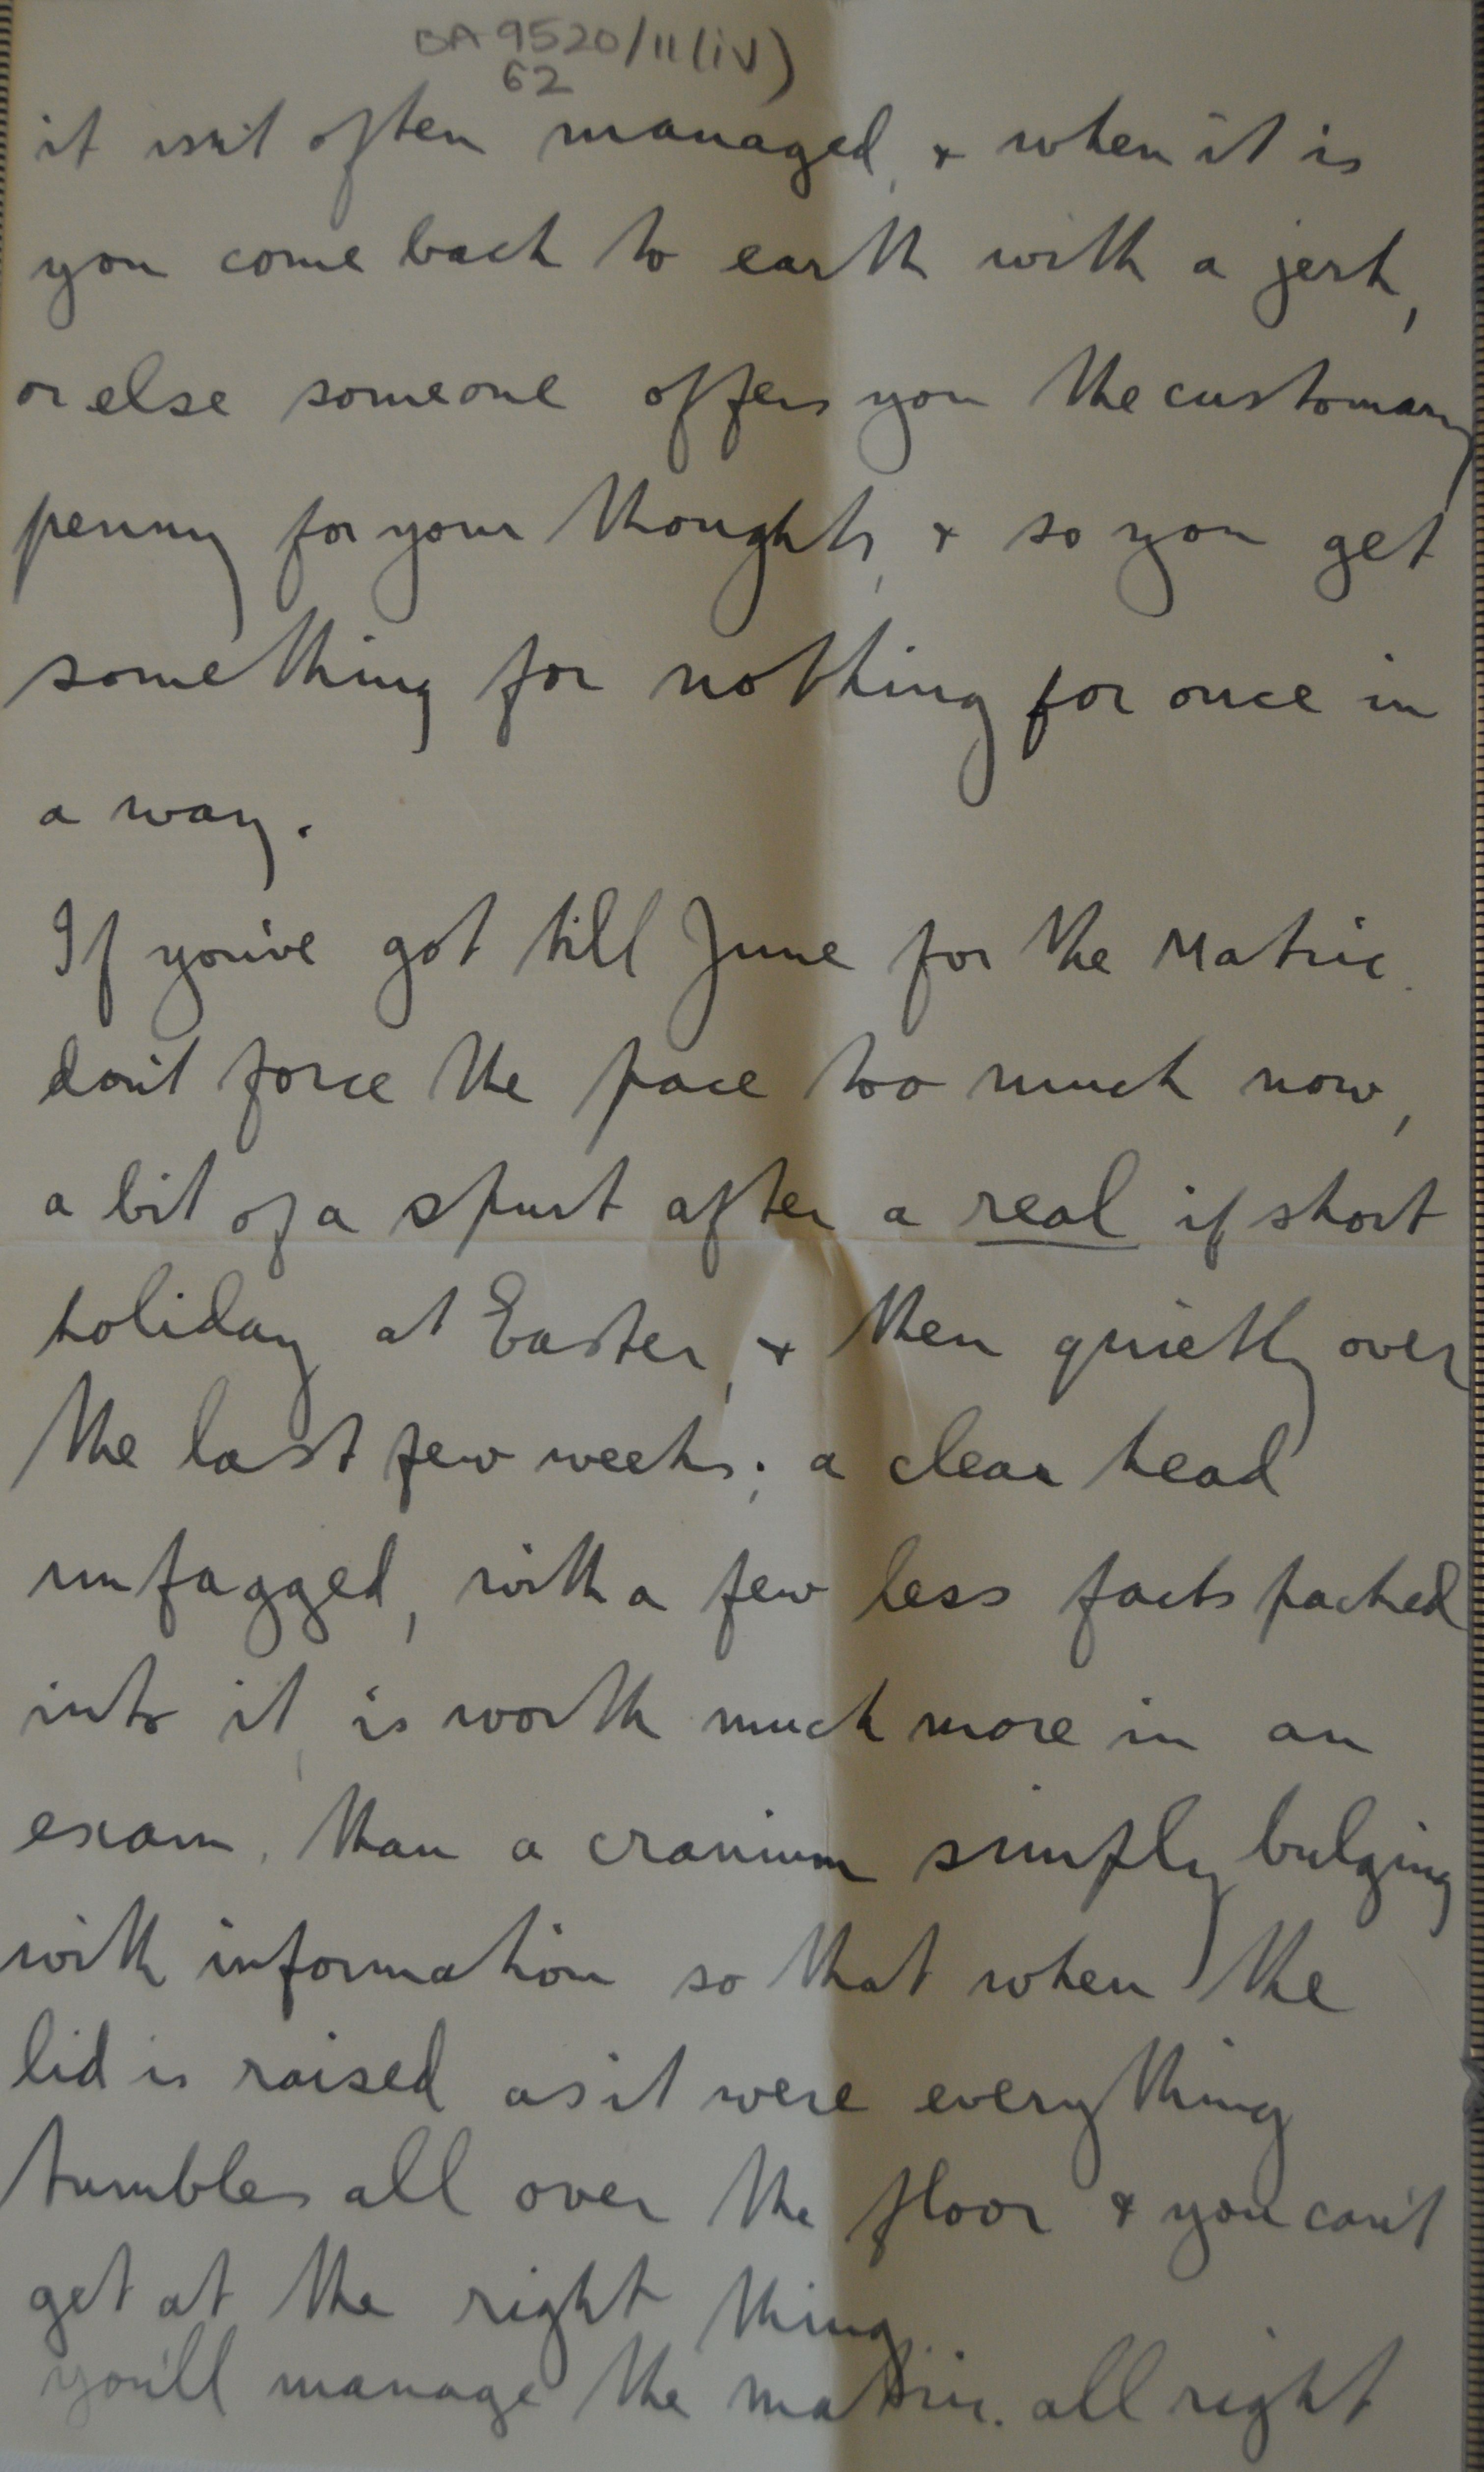 BA 9520/11(iv)
62
it isn't often managed, & when it is
you come back to earth with a jerk,
or else someone offers you the customary
penny for your thoughts, & so you get
something for nothing for once in
a way.
If you've got till June for the Matric.
don't force the pace too much now,
a bit of a spurt after a real if short
holiday at Easter, & then quietly over
the last few weeks; a clear head
unfagged, with a few less facts packed
into it, is worth much more in an
exam. than a cranium simply bulging
with information so that when the
lid is raised as it were everything
tumbles all over the floor & you can't
get at the right thing.
you'll manage the matric. all right